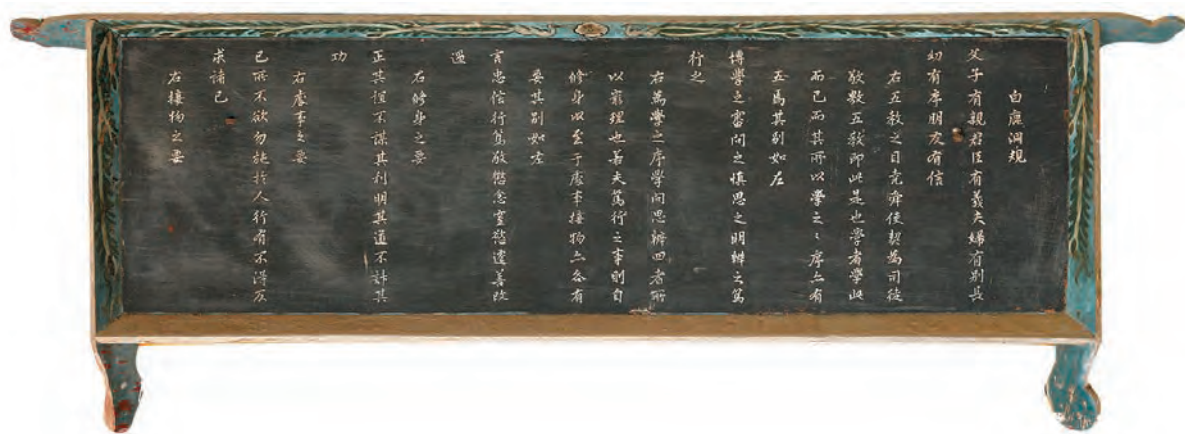 白鹿洞規
父子有親君臣有義夫婦有別長
幼有序朋友有信
右五教之目堯舜使契為司徒
敬敷五教即此是也學者學此
而已而其所以學之〻序亦有
五焉其別如左
博學之審問之慎思之明辨之篤
行之
右為學之序學問思辨四者所
以窮理也若夫篤行之事則自
修身以至于處事接物亦各有
要其別如左
言忠信行篤敬懲忿窒慾遷善改
過
右修身之要
正其誼不謀其利明其道不計其
功
右處事之要
己所不欲勿施於人行有不得反
求諸己
右接物之要